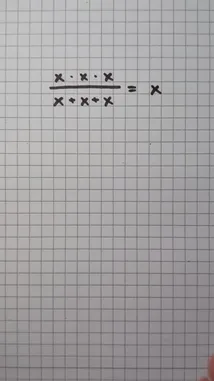 x · x · x
x + x + x = x